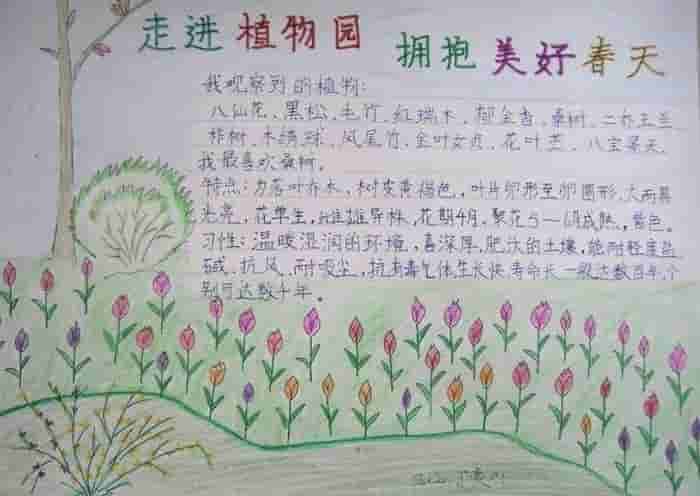 走进植物园 拥抱美好春天
我观察到的植物:
八仙花、黑松、毛竹、红瑞木、郁金香、桑树、二乔玉兰
柞树、木绣球、凤尾竹、金叶女贞、花叶芒、八宝景天。
我最喜欢桑树。
特点:为落叶乔木,树皮黄褐色,叶片卵形至卵圆形,大而具
光亮,花单生,雌雄异株,花期4月,聚花5—6月成熟,紫色。
习性:温暖湿润的环境,喜深厚,肥沃的土壤,能耐轻度盐
碱、抗风、耐吸尘,抗有毒气体生长快,寿命长一般达数百年,个
别可达数千年。